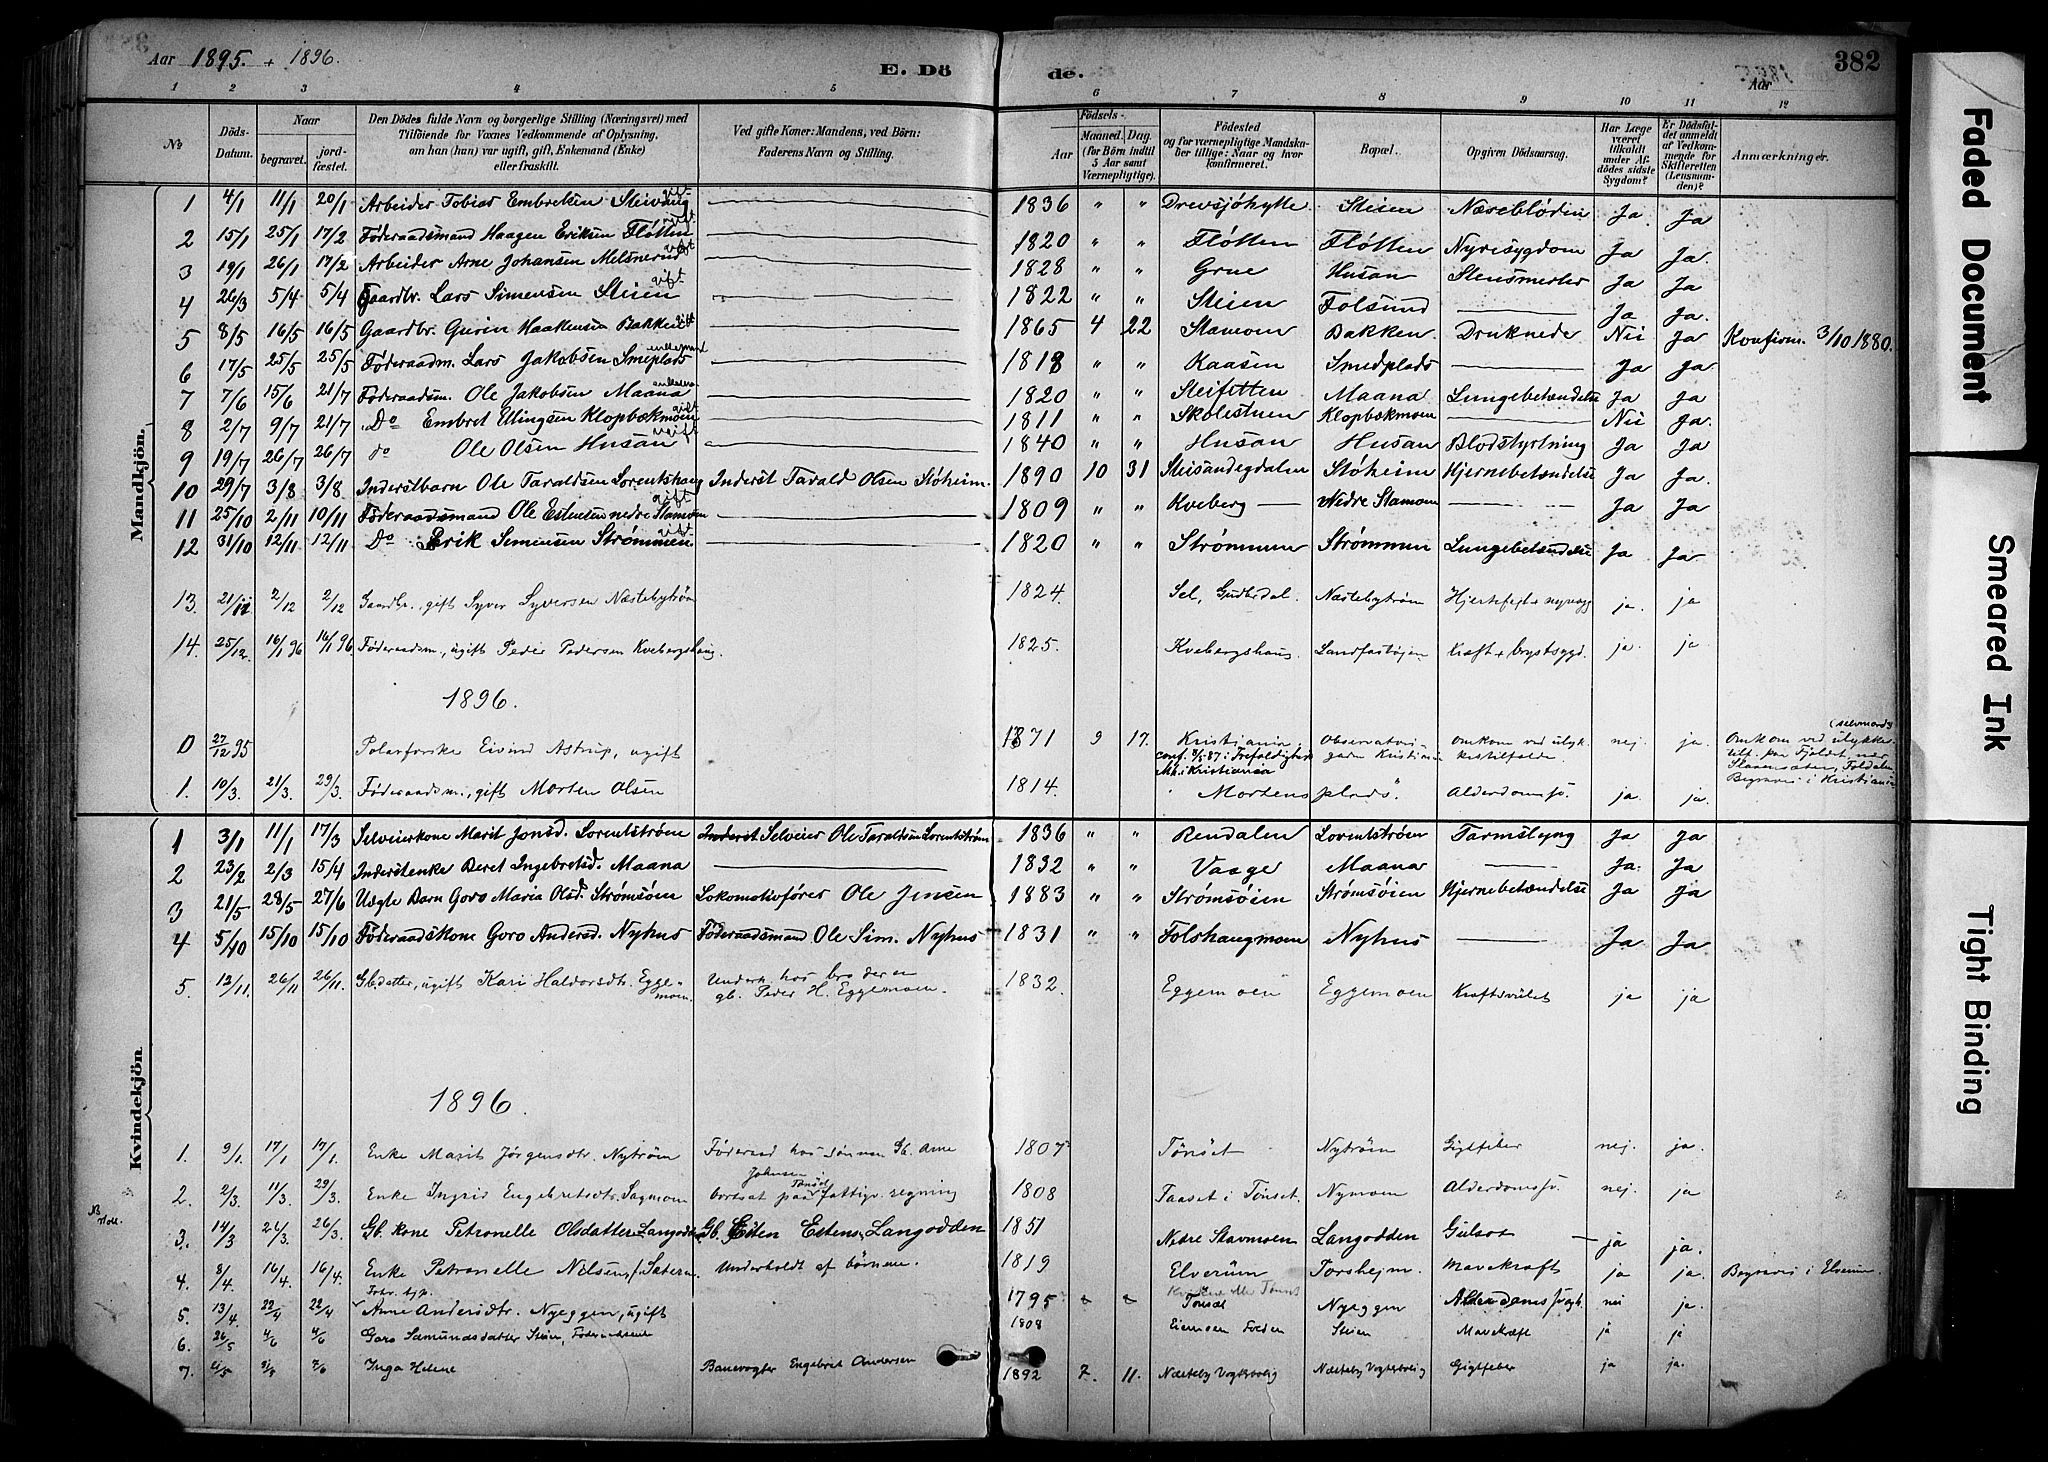 Aar 1895. + 1896.
E. Döde.
382
Aar
1 2 3 4 5 6 7 8 9 10 11 12
No
Döds-Datum.
Naar
begravet.
jordfæstet.
Den Dödes fulde Navn og borgerlige Stilling (Næringsvei) med
Tilföiende for Voxnes Vedkommende af Oplysning,
om han (hun) var ugift, gift, Enkemand (Enke)
eller fraskilt.
Ved gifte Koner: Mandens, ved Börn:
Faderens Navn og Stilling.
Födsels-
Aar
Maaned. Dag.
(for Börn indtil
5 Aar samt
Værnepligtige).
Födested
og for værnepligtige Mandskaber tillige: Naar og hvor
konfirmeret.
Bopæl.
Opgiven Dödsaarsag.
Har Læge
været
tilkaldt
under Afdödes sidste
Sygdom?
Er Dödsfaldet anmeldt
af Vedkommende for
Skifteretten
(Lensmanden)?
Anmærkninger.
Mandkjön.
1 4/1 11/1 20/1 Arbeider Tobias Embretsen Steivang gift 1836 " " Drevsjöhytte Steien Næseblödin Ja Ja
2 15/1 25/1 17/2 Föderaadsmand Haagen Eriksen Fløtten gift 1820 " " Fløtten Fløtten Nyresygdom Ja Ja.
3 19/1 26/1 17/2 Arbeider Arne Johansen Melsnerud gift 1828 " " Grue Husan Stensmerter Ja Ja
4 26/3 5/4 5/4 Gaardbr. Lars Simensen Steien gift 1822 " " Steien Folsund Ja Ja.
5 8/5 16/5 16/5 Gaardbr. Haakensen Bakken gift 1865 4 22 Stamoen Bakken Druknede Nei Ja Konfirm. 3/10 1880.
6 17/5 25/5 25/5 Föderaadm. Lars Jakobsen Smeplads enkemand 1818 " " Kaasen Smedplads Ja Ja
7 7/6 15/6 21/7 Föderaadsm. Ole Jakobsen Maana 1820 " " Steifetten Maana Lungebetændelse Ja Ja
8 2/7 9/7 21/7 Do Embret Ellingsen Klopbækmoen gift 1811 " " Skolestuen Klopbækmoen Nei Ja.
9 19/7 26/7 26/7 do Ole Olsen Husan gift 1840 " " Husan Husan Blodstyrtning Ja Ja
10 29/7 3/8 3/8 Inderstbarn Ole Taraldsen Lorentshaug Inderst Tarald Olsen Støheim. 1890 10 31 Støheim Hjernebetændelse Ja Ja.
11 25/10 2/11 10/11 Föderaadsmand Ole Estensen nedre Stamoen gift 1809 " " Kveberg Nedre Stamoen Ja Ja
12 31/10 12/11 12/11 Do Erik Simensen Strømmen gift 1820 " " Strømmen Strømmen Lungebetændelse Ja Ja
13. 21/11 2/12 2/12 Gaardbr., gift Syver Syversen Næstebytrøen 1824. Sel, Gudbrdal. Næstebytrøen ja. ja
14. 25/12. 16/1 96 16/1 96 Føderaadsm., ugift Peder Pedersen Kvebergshaug. 1825. Kvebergshaug. Landfastøjen Kræft + brystsygd. ja. ja
1896.
0 27/12 95 Polarforske Eivind Astrup, ugift 1871 9 17. Kristiania Observatorigaden Kristiania omkom ved ulykkestilfælde. nej. ja.
conf. 3/5 87 i Trefoldighets
Mh. i Kristiania
(selvmord)
Omkom ved ulykkestilf. paa Fjeldet, nær
Foldalen.
Begravet i Kristiania
1. 10/3. 21/3. 29/3. Føderaadsm., gift Morten Olsen 1814. " Mortensplads " Alderdomssv. ja. ja.
Kvindekjön.
1 3/1 11/1 17/3 Selveierkone Marit Jonsd. Lorentstrøen Inderst Selveier Ole Taraldsen Lorentstrøen 1836 " " Rendalen Lorentstrøen Tarmslyng Ja Ja
2 23/2 2/3 15/4 Inderstenke Beret Ingebretsd. Maana 1832 " " Vaage Maana Ja. Ja
3 21/5 28/5 27/6 Uægte Barn Goro Maria Olsd. Strømsøien Lokomotivfører Ole Jensen 1883 " " Strømsøien Strømsøien Hjernebetændelse Ja Ja
4 5/10 15/10 15/10 Föderaadskone Goro Andersd. Nyhus Föderaadsmand Ole Sim. Nyhus 1831 " " Folshaugmoen Nyhus Ja Ja
5. 12/11. 26/11 26/11. Gb.datter, ugift Kari Haldorsdtr. Eggemoen. Underh. hos broderen
gb. Peder H. Eggemoen. 1832. Eggemoen Eggemoen Kræftsvulst ja ja
1896.
1. 9/1. 17/1 17/1. Enke Marit Jørgensdtr. Nytrøen Føderaad hos sønnen Gb. Arne
Johnsen 1807 Tönset Nytrøen Gigtfeber nej. ja.
2. 2/3. 11/3. 29/3. Enke Ingrid Engebretsdtr. Sagmoen bortsat paa Tönset fattigv. regning 1808 Taaset i Tönset. Nymoen Alderdomssv. nej. ja
NB
3. 14/3 26/3. 26/3. Gb. kone Petronelle Olsdatter Langodden Gb. Esten Estens. Langodden 1851 Nedre Stavmoen Langodden Gulsot ja ja.
4. 8/4. 16/4. 16/4. Enke Petronelle Nilsen f. Underholdt af børnene. 1819 Elverum Torshejm. Mavekræft ja ja. Begravet i Elverum
5. 13/4. 22/4 22/4 Anne Andersdtr. Nyeggen, ugift 1795 Tönset Nyeggen nei ja.
6. 26/5 4/6 4/6 Goro Sæmundsdatter Steien, 1808 Steien Mavekræft ja ja
7. Inga Helene Banevogter Engebret Andersen 1892 7. 11. Næsteby Vogterbolig Næsteby Vogterbolig Gigtfeber ja ja.
Faded Document
Smeared Ink
Tight Binding